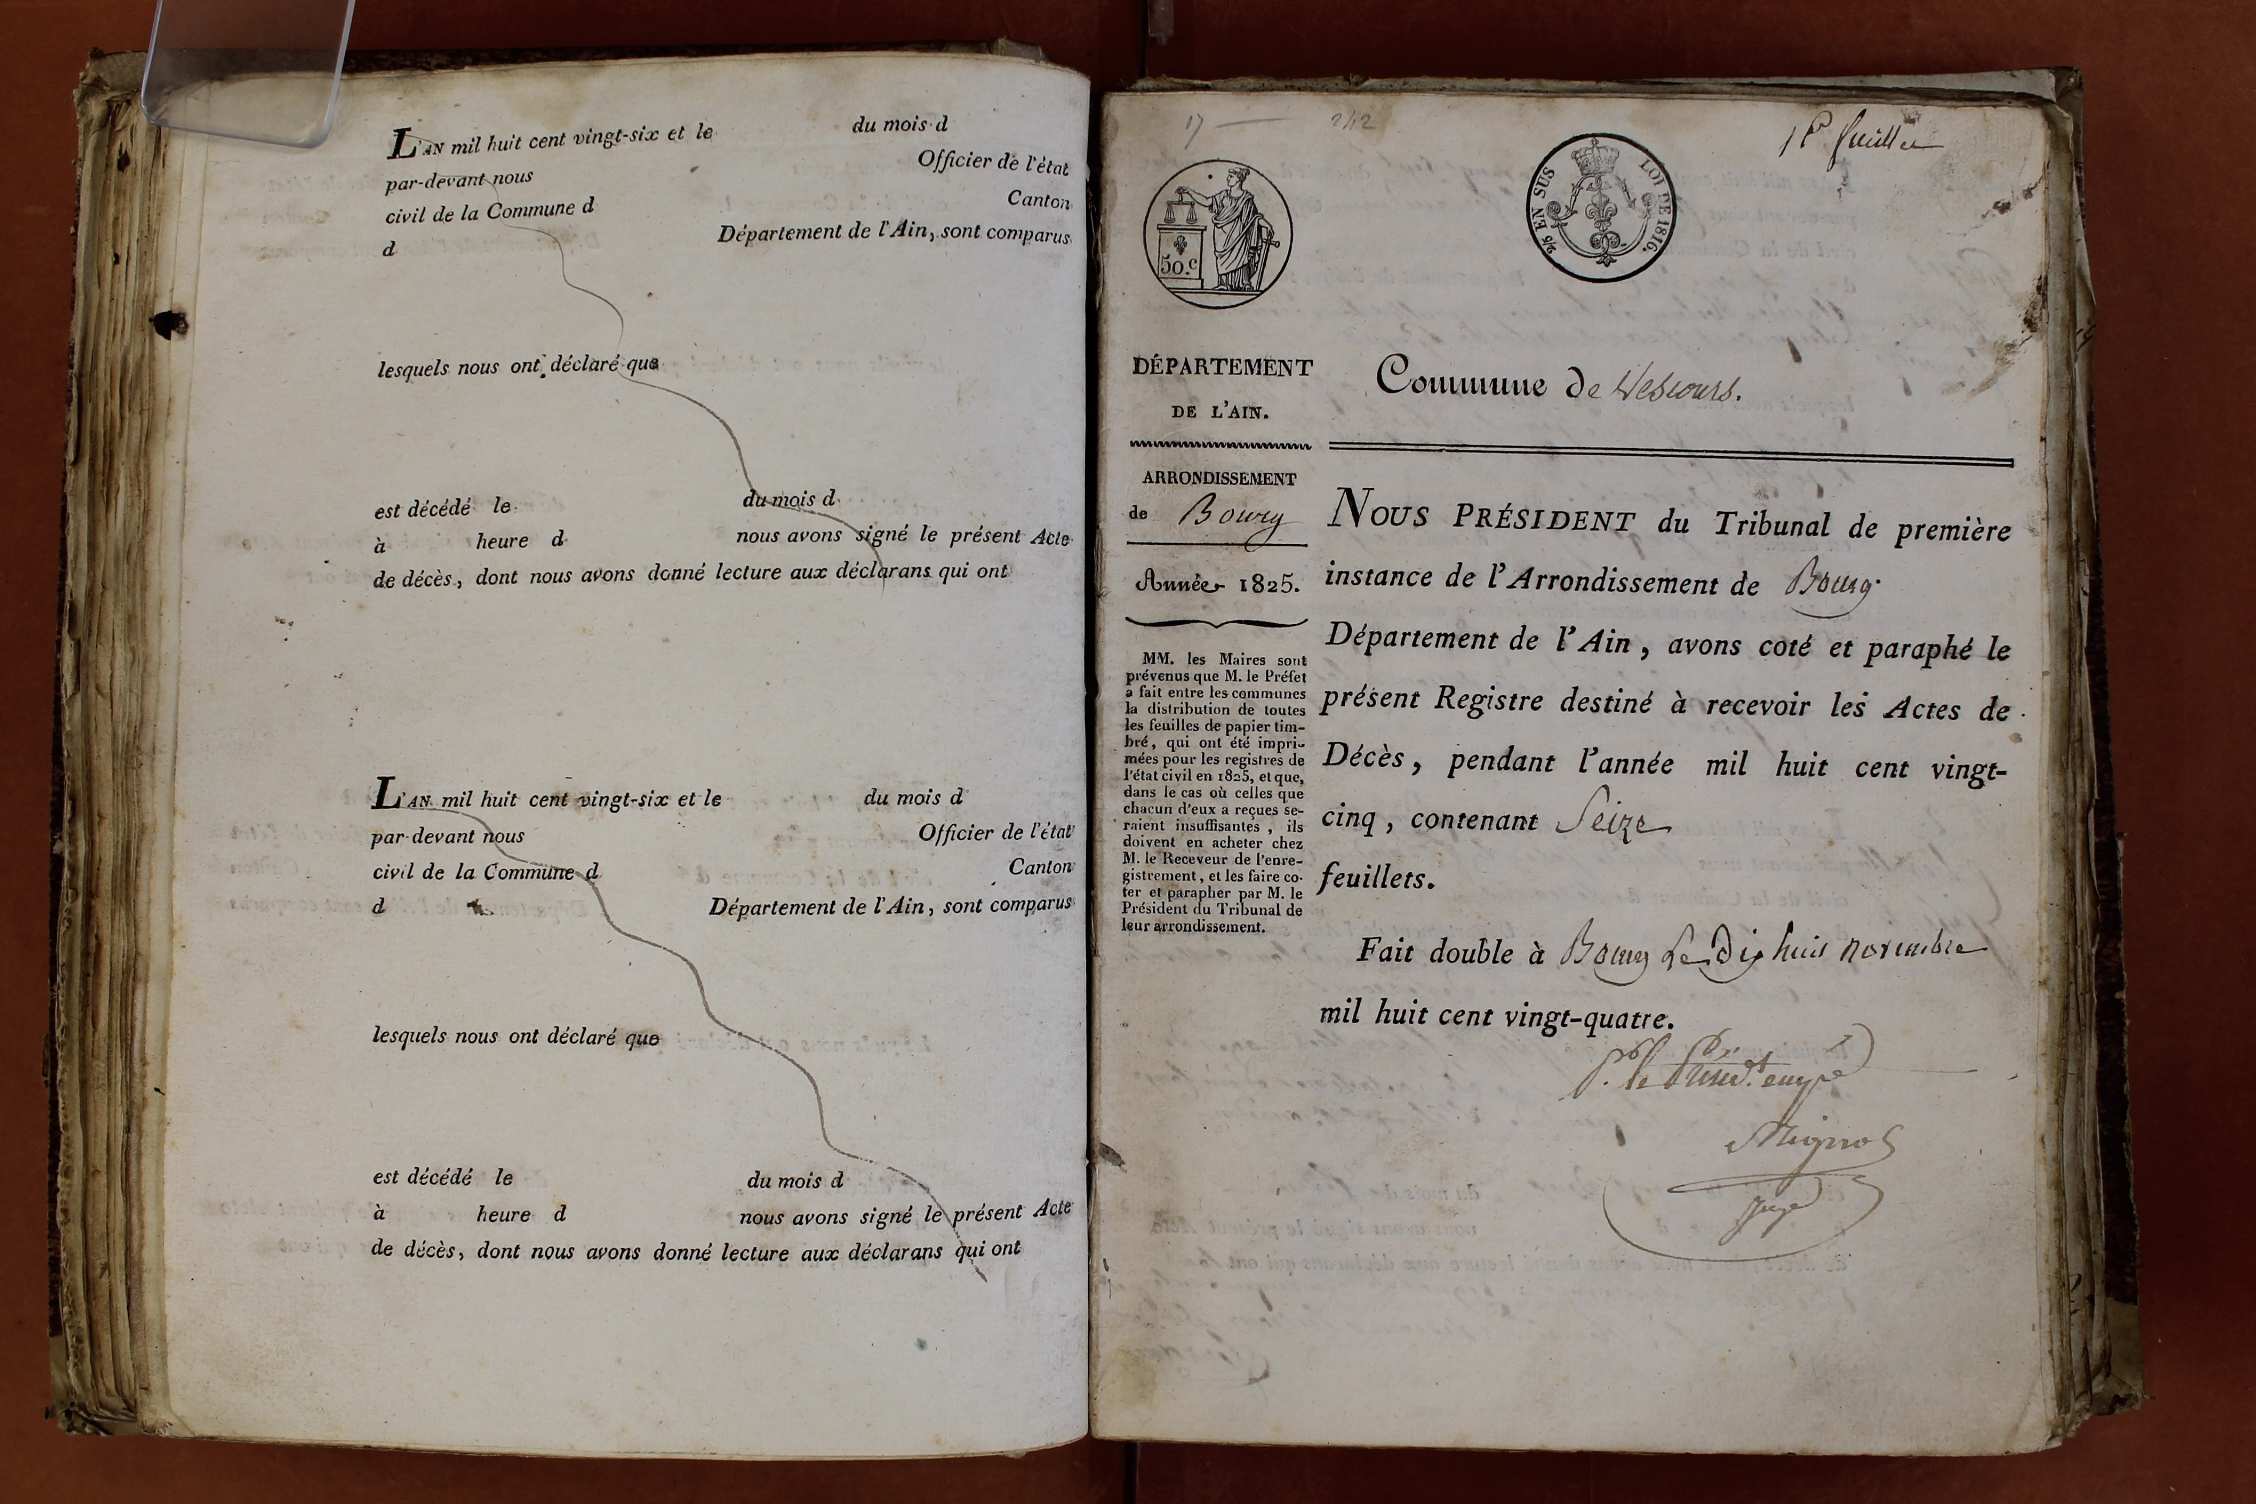 L'AN mil huit cent vingt-six et le du mois d
par-devant nous Officier de l'état
civil de la Commune d Canton
d Département de l'Ain, sont comparus
lesquels nous ont déclaré que
est décédé le du mois d
à heure d nous avons signé le présent Acte
de décès, dont nous avons donné lecture aux déclarans qui ont
L'AN mil huit cent vingt-six et le du mois d
par-devant nous Officier de l'état
civil de la Commune d Canton
d Département de l'Ain, sont comparus
lesquels nous ont déclaré que
est décédé le du mois d
à heure d nous avons signé le présent Acte
de décès, dont nous avons donné lecture aux déclarans qui ont
17 — 242
50.c
EN SUS LOI DE 1816.
DÉPARTEMENT
DE L'AIN.
ARRONDISSEMENT
de Bourg
Année 1825.
MM. les Maires sont
prévenus que M. le Préfet
a fait entre les communes
la distribution de toutes
les feuilles de papier tim-
bré, qui ont été impri-
mées pour les registres de
l'état civil en 1825, et que,
dans le cas où celles que
chacun d'eux a reçues se-
raient insuffisantes, ils
doivent en acheter chez
M. le Receveur de l'enre-
gistrement, et les faire co-
ter et parapher par M. le
Président du Tribunal de
leur arrondissement.
Commune de Vescours.
NOUS PRÉSIDENT du Tribunal de première
instance de l'Arrondissement de Bourg
Département de l'Ain, avons coté et paraphé le
présent Registre destiné à recevoir les Actes de
Décès, pendant l'année mil huit cent vingt-
cinq, contenant Seize
feuillets.
Fait double à Bourg Le Dix huit novembre
mil huit cent vingt-quatre.
P. le Présid.t empé
Juge